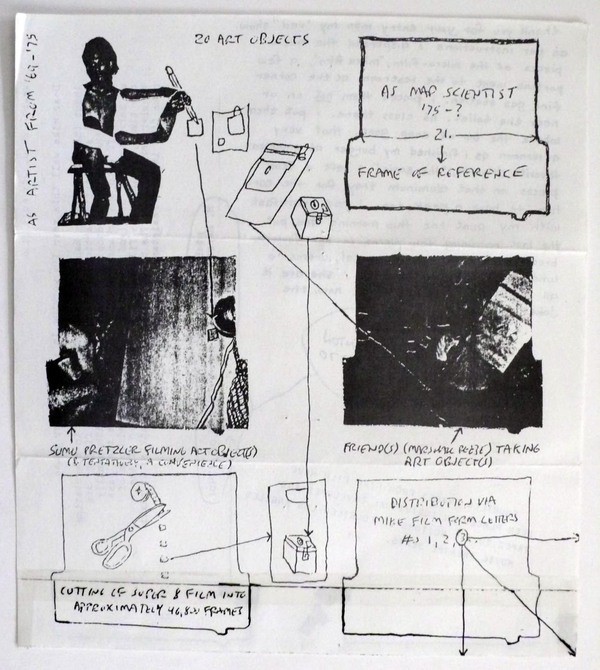 20 ART OBJECTS
AS ARTIST FROM '69-'75
AS MAD SCIENTIST
'75-?
21.
FRAME OF REFERENCE
SUMO PRETZLER FILMING ART OBJECT(S)
(& TENTATIVELY, A CONVENIENCE)
FRIEND(S) (MARSHALL REESE) TAKING
ART OBJECT(S)
CUTTING OF SUPER 8 FILM INTO
APPROXIMATELY 46,800 FRAMES
DISTRIBUTION VIA
MIKE FILM FORM LETTERS
#s 1, 2, 3